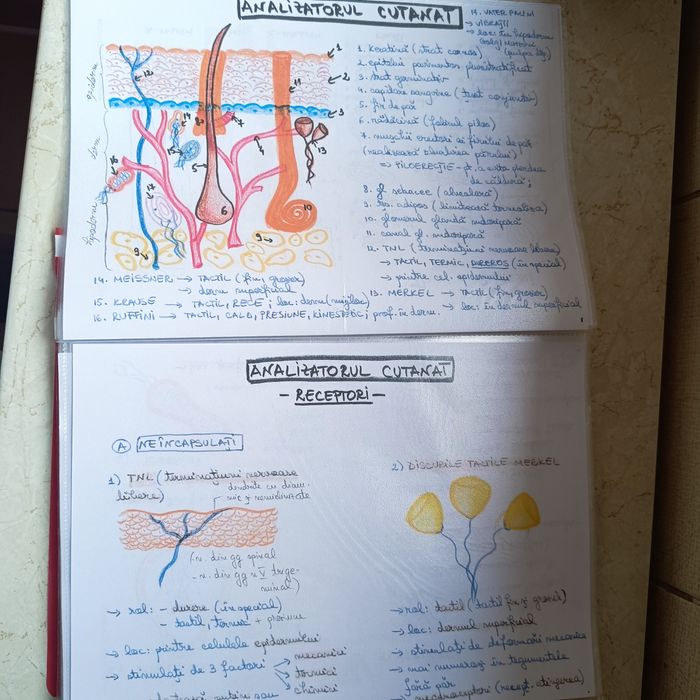 ANALIZATORUL CUTANAT
17. VATER PACINI
→ VIBRAȚII
→ loc: în hipodermul
1. Keatină (strat cornos)
2. epiteliu pavimentos pluristratificat
3. strat germinativ
4. capilare sangvine (țesut conjunctiv)
5. fir de păr
6. rădăcină (folicul pilos)
7. mușchii erectori ai firului de păr
(realizează zbârlirea părului)
⇒ PILOERECȚIE - pt. a evita pierderea
de căldură;
8. gl. sebacee (alveolară)
9. țes. adipos (limitează termoliza)
10. glomerul glandă sudoripară
11. canal gl. sudoripară
12. TNL (terminațiuni nervoase libere)
→ TACTIL, TERMIC, DUREROS (în special)
→ printre cel. epidermului
13. MERKEL → TACTIL (fin, grosier)
↳ loc: în dermul superficial
14. MEISSNER → TACTIL (fin, grosier)
↳ derm superficial
15. KRAUSE → TACTIL, RECE; loc: derm (mijloc)
16. RUFFINI → TACTIL, CALD, PRESIUNE, KINESTEZIC; prof. în derm.
epiderm
derm
hipoderm
1
2
3
4
5
6
7
8
9
9
10
11
12
13
14
15
16
17
ANALIZATORUL CUTANAT
- RECEPTORI -
A NEÎNCAPSULAȚI
1) TNL (terminațiuni nervoase
libere)
dendrite cu diam.
mic și nemielinizate
(- n. din gg spinal
- n. din gg n V trige-
minal)
→ rol: - durere (în special)
- tactil, termic + presiune
→ loc: printre celulele epidermului
→ stimulați de 3 factori
mecanici
termici
chimici
2) DISCURILE TACTILE MERKEL
→ rol: tactil (tactil fin și grosier)
→ loc: dermul superficial
→ stimulați de deformări mecanice
→ mai numeroși în tegumentele
fără păr
→ mecanoreceptori (recept. atingerea)